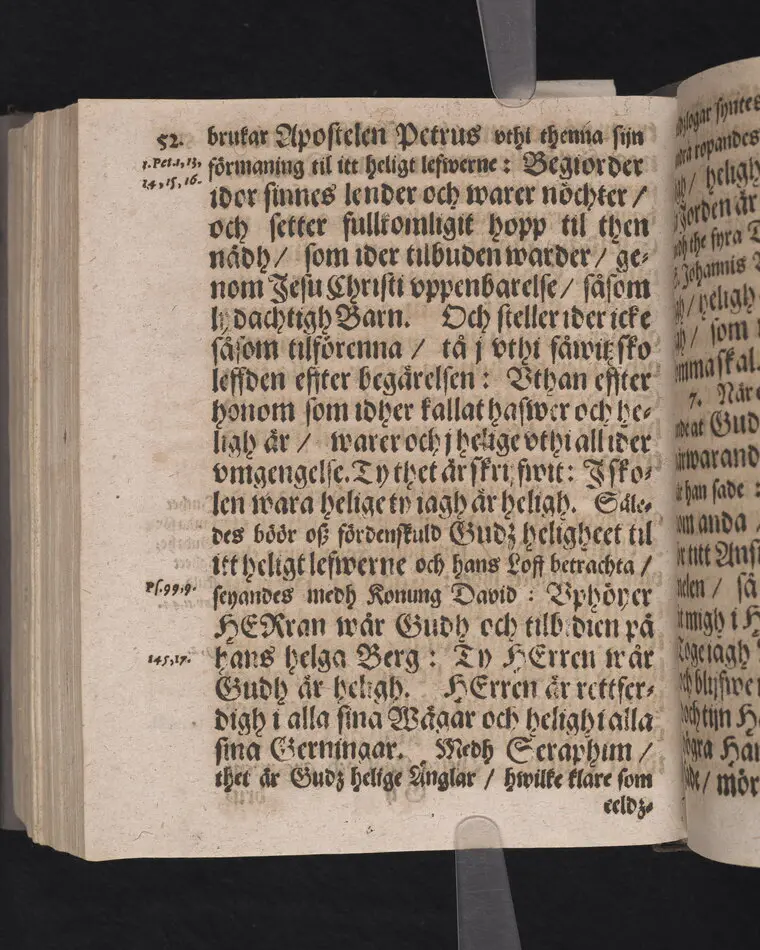 52.
brukar Apostelen Petrus vthi thenna sijn
1. Pet. 1, 13,
14, 15, 16.
förmaning til itt heligt lefwerne: Begiorder
idor sinnes lender och warer nöchter /
och setter fullkomligit hopp til then
nådh / som ider tilbuden warder / ge-
nom Jesu Christi vppenbarelse / såsom
lydachtigh Barn. Och steller ider icke
såsom tilförenna / tå j vthi fåwitzsko
leffden effter begärelsen: Vthan effter
honom som idher kallat hafwer och he-
ligh är / warer och j helige vthi all ider
vmgengelse. Ty thet är skrifwit: J sko-
len wara helige ty iagh är heligh. Såle-
des böör oß fördenskuld Gudz heligheet til
itt heligt lefwerne och hans Loff betrachta /
Ps. 99, 9.
seyandes medh Konung David: Vphöyer
HERran wår Gudh och tilbidien på
145, 17.
hans helga Berg: Ty HErren wår
Gudh är heligh. HErren är rettfer-
digh i alla sina Wägar och heligh i alla
sina Gerningar. Medh Seraphim /
thet är Gudz helige Änglar / hwilke klare som
eeldz-
logar syntes
ropandes
heligh
Jorden är
the fyra
Johannis
heligh
/ som
7. När
at Gud
han sade :
anda /
titt
/ så
migh i
iagh
och tijn
mör